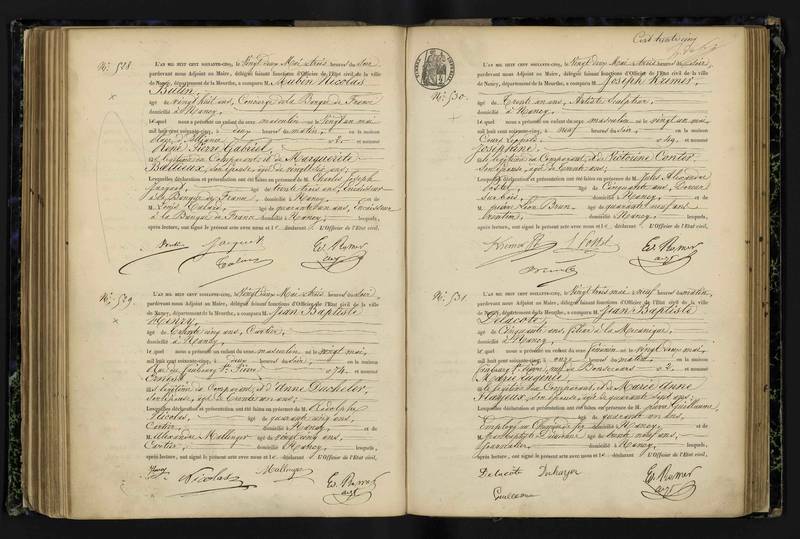 N°. 528.
L'AN MIL HUIT CENT SOIXANTE-CINQ, le Vingt deux Mai trois heures du soir,
pardevant nous Adjoint au Maire, délégué faisant fonctions d'Officier de l'Etat civil de la ville
de Nancy, département de la Meurthe, a comparu M. Aubin Nicolas
Butin,
âgé de Vingt huit ans, Concierge de la Banque de France
domicilié à Nancy,
Lequel nous a présenté un enfant du sexe masculin né le vingt un mai
mil huit cent soixante-cinq, à heures du matin, en la maison
n° 2. et nommé
René Pierre Gabriel,
fils légitime du Comparant, et de Marguerite
Bailleux, son épouse, âgée de vingt six ans;
Lesquelles déclaration et présentation ont été faites en présence de M. Charles Joseph
Jacquot, âgé de trente trois ans, Encaisseur
à la Banque de France, domicilié à Nancy, et de
M. Louis âgé de quarante un ans, Encaisseur
à la Banque de France domicilié à Nancy; lesquels,
après lecture, ont signé le présent acte avec nous et le déclarant. L'Officier de l'Etat civil,
Jacquot
Ed. Remer
adjt
N°. 529.
L'AN MIL HUIT CENT SOIXANTE-CINQ, le Vingt deux Mai trois heures du soir,
pardevant nous Adjoint au Maire, délégué faisant fonctions d'Officier de l'Etat civil de la ville
de Nancy, département de la Meurthe, a comparu M. Jean Baptiste
Henry,
âgé de trente cinq ans, Cartier,
domicilié à Nancy,
Lequel nous a présenté un enfant du sexe masculin né le vingt mai,
mil huit cent soixante-cinq, à deux heures du soir, en la maison
Rue du faubourg St. Pierre n° 74. et nommé
Ernest
fils légitime du Comparant, et d'Anne Duchelet,
son épouse, âgée de trente un ans,
Lesquelles déclaration et présentation ont été faites en présence de M. Rodolphe
Nicolas, âgé de quarante ans,
Cartier, domicilié à Nancy, et de
M. Alexandre Mallinger âgé de vingt cinq ans,
Cartier, domicilié à Nancy, lesquels,
après lecture, ont signé le présent acte avec nous et le déclarant. L'Officier de l'Etat civil,
Henry
Nicolas
Mallinger
Ed. Remer
adjt
Cent trente cinq
N°. 530.
L'AN MIL HUIT CENT SOIXANTE-CINQ, le Vingt deux Mai trois heures du soir,
pardevant nous Adjoint au Maire, délégué faisant fonctions d'Officier de l'Etat civil de la ville
de Nancy, département de la Meurthe, a comparu M. Joseph Kremer,
âgé de trente un ans, Artiste Sculpteur
domicilié à Nancy,
Lequel nous a présenté un enfant du sexe masculin né le vingt un mai
mil huit cent soixante-cinq, à neuf heures du soir, en la maison
Cours Léopold, n° 49. et nommé
Joséphine
légitime du Comparant, et de Victorine Conter,
Son épouse, âgée de trente ans,
Lesquelles déclaration et présentation ont été faites en présence de M. Jules Alexandre
âgé de Cinquante ans, Doreur
sur bois, domicilié à Nancy, et de
M. Léon Brun âgé de quarante neuf ans
domicilié à Nancy, lesquels,
après lecture, ont signé le présent acte avec nous et le déclarant. L'Officier de l'Etat civil,
Kremer
Ed. Remer
adjt
N°. 531.
L'AN MIL HUIT CENT SOIXANTE-CINQ, le Vingt trois mai neuf heures du matin,
pardevant nous Adjoint au Maire, délégué faisant fonctions d'Officier de l'Etat civil de la ville
de Nancy, département de la Meurthe, a comparu M. Jean Baptiste
Delacôte,
âgé de Cinquante ans, fileur à la Mécanique,
domicilié à Nancy
Lequel nous a présenté un enfant du sexe féminin né le vingt deux mai,
mil huit cent soixante-cinq, à onze heures du matin, en la maison
faubourg St. Pierre, de Bonsecours n° 2. et nommé
Marie Eugénie
fille légitime du Comparant, et de Marie Anne
son épouse âgée de quarante sept ans;
Lesquelles déclaration et présentation ont été faites en présence de M. pierre Guillaume,
âgé de quarante un ans,
Employé au Chemin de fer domicilié à Nancy, et de
M. âgé de trente neuf ans,
domicilié à Nancy, lesquels,
après lecture, ont signé le présent acte avec nous et le déclarant. L'Officier de l'Etat civil,
Delacôte
Guillaume
Ed. Remer
adjt